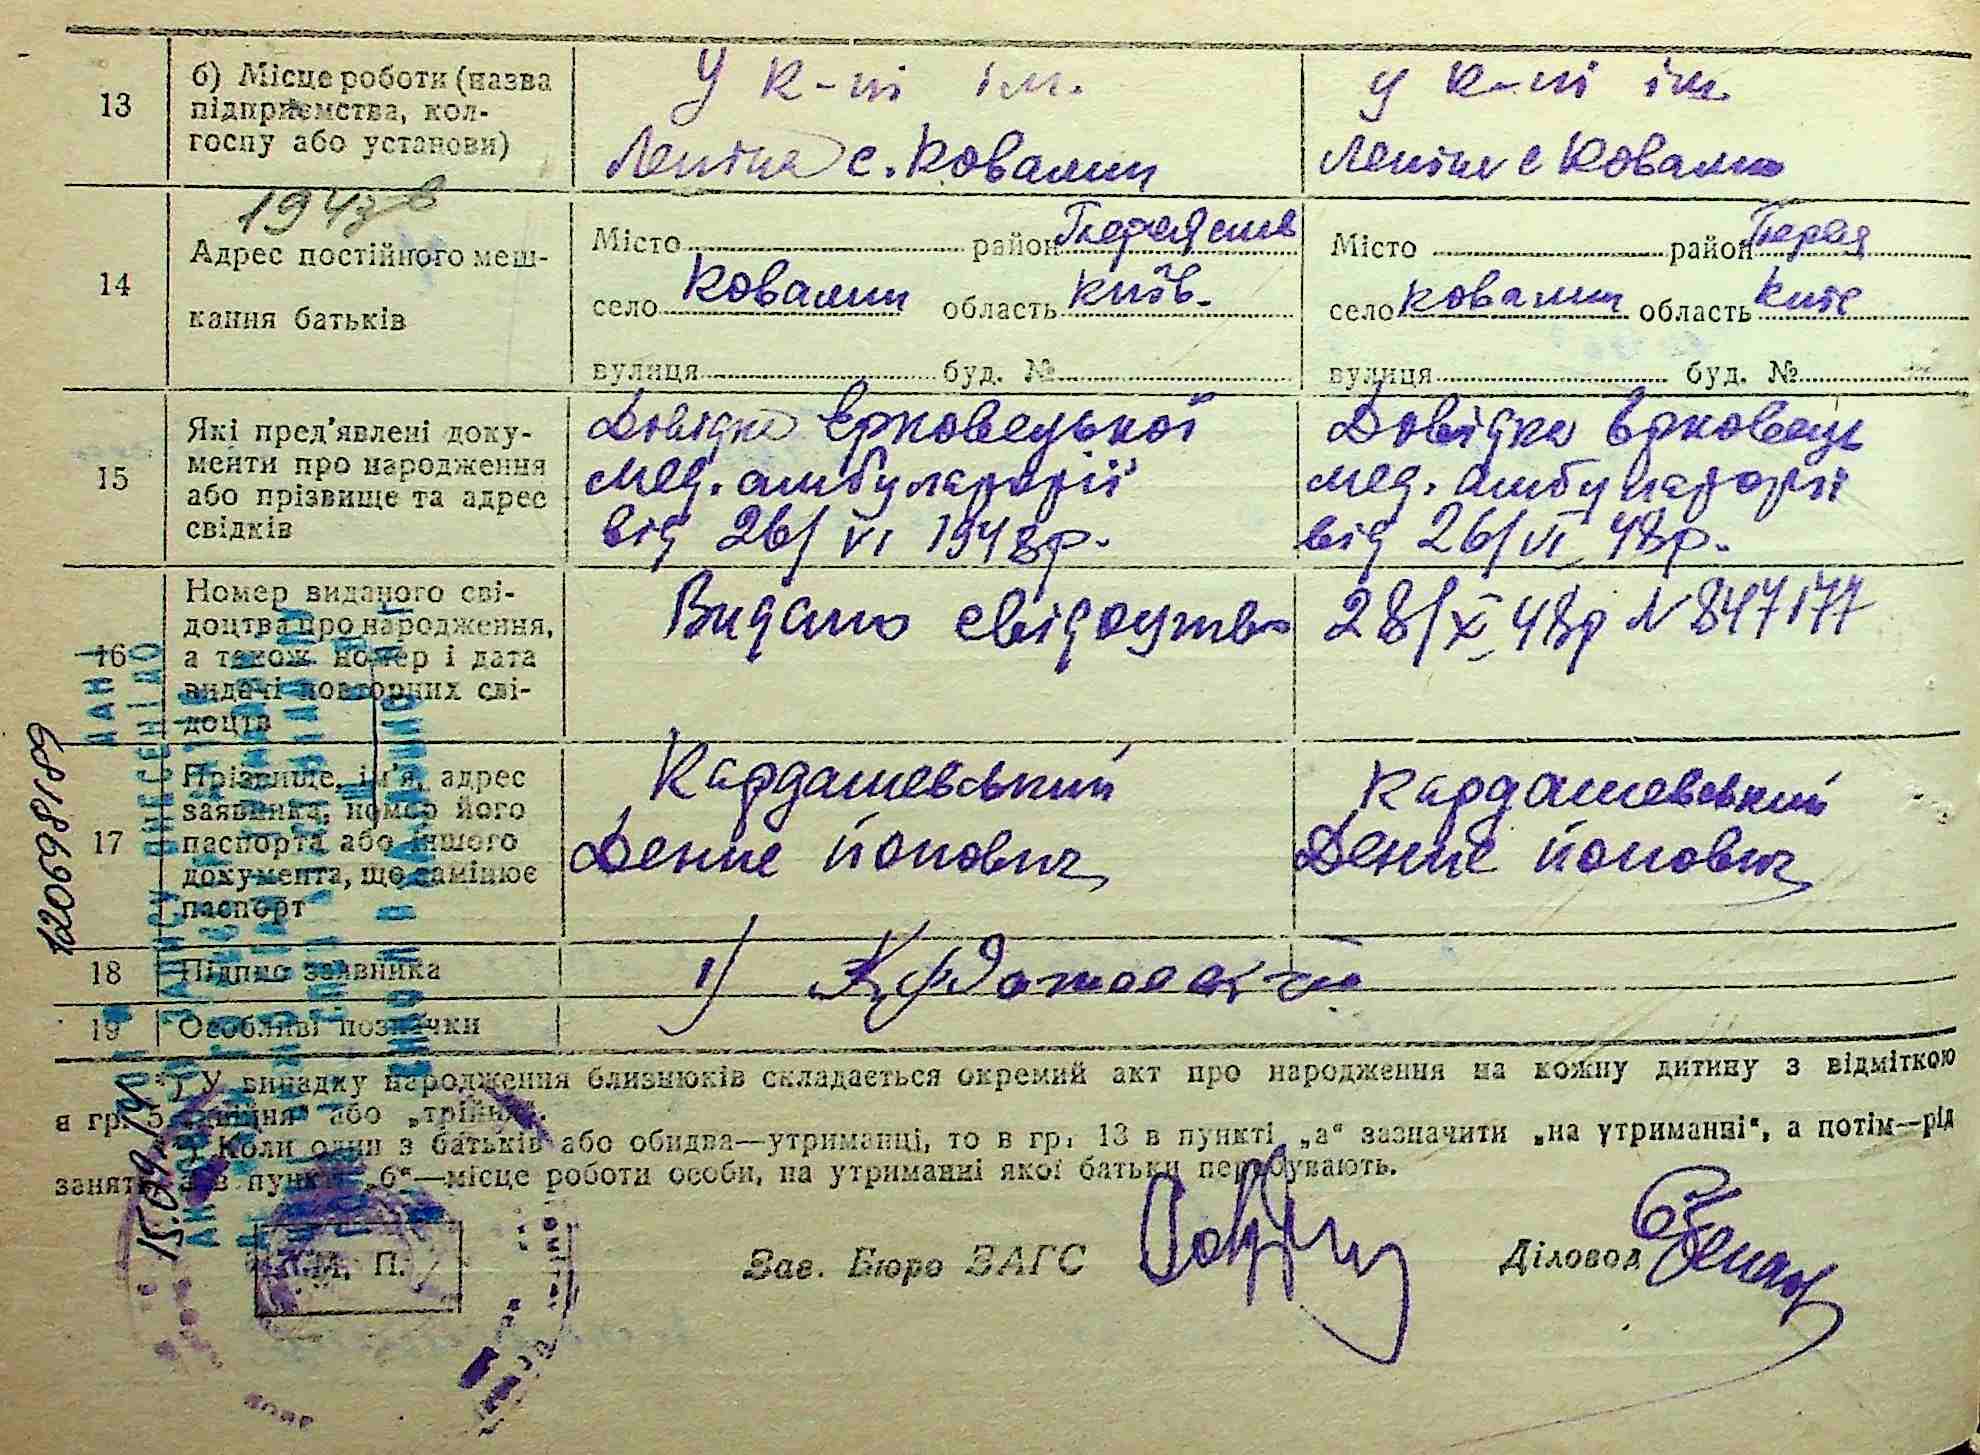 13
б) Місце роботи (назва
підприємства, кол-
госпу або установи)
У к-пі ім.
Леніна с. Ковалин
У к-пі ім.
Леніна с Ковалин
14
Адрес постійного меш-
кання батьків
Місто район
село Ковалин область Київ.
вулиця буд. №
Місто район Перея
село Ковалин область Київ
вулиця буд. №
15
Які пред'явлені доку-
менти про народження
або прізвище та адрес
свідків
Довідка Єрковецької
мед. амбулаторії
від 26/VI 1948р.
Довідка Єрковець
мед. амбулаторії
від 26/VI 48р.
16
Номер виданого сві-
доцтва про народження,
а також номер і дата
видачі повторних сві-
доцтв
Видано свідоцтво 28/X 48р N 847177
17
Прізвище, ім'я, адрес
заявника, номер його
паспорта або іншого
документа, що замінює
паспорт
Кардашевський
Денис Йопович
Кардашевський
Денис Йопович
18
Підпис заявника
1)
19
Особливі позначки
*) У випадку народження близнюків складається окремий акт про народження на кожну дитину з відміткою
в гр. 5 „двійня" або „трійня".
Коли один з батьків або обидва—утриманці, то в гр. 13 в пункті „а" зазначити „на утриманні", а потім—рід
заняття, а в пункті „б"—місце роботи особи, на утриманні якої батьки перебувають.
М. П.
Зав. Бюро ЗАГС
Діловод